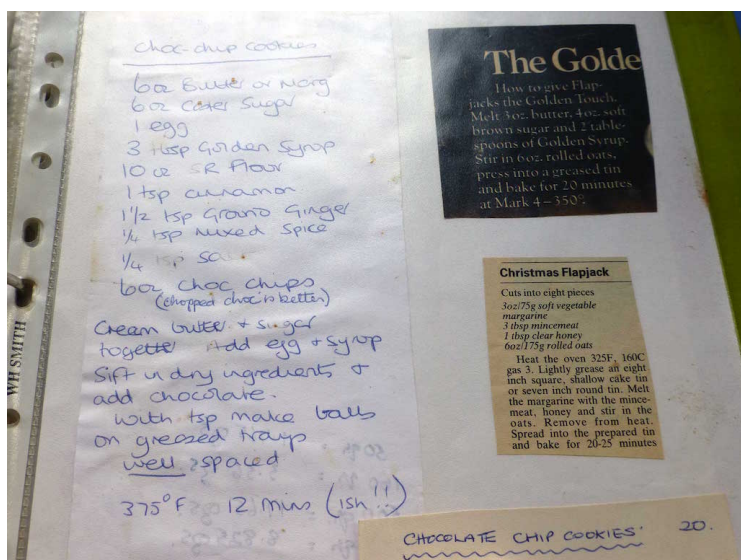 Choc-chip cookies
6oz Butter or Marg
6oz Caster Sugar
1 egg
3 tbsp Golden Syrup
10 oz SR Flour
1 tsp cinnamon
1 1/2 tsp Ground Ginger
1/4 tsp Mixed Spice
1/4 tsp
6oz Choc Chips
(chopped choc is better)
Cream butter + sugar
together Add egg + syrup
Sift in dry ingredients +
add chocolate.
With tsp make balls
on greased trays
well spaced
375°F 12 mins (ish!!)
WH SMITH
The Golde
How to give Flap-
jacks the Golden Touch.
Melt 3oz. butter, 4oz. soft
brown sugar and 2 table-
spoons of Golden Syrup.
Stir in 6oz. rolled oats,
press into a greased tin
and bake for 20 minutes
at Mark 4–350°.
Christmas Flapjack
Cuts into eight pieces
3oz/75g soft vegetable
margarine
3 tbsp mincemeat
1 tbsp clear honey
6oz/175g rolled oats
Heat the oven 325F, 160C
gas 3. Lightly grease an eight
inch square, shallow cake tin
or seven inch round tin. Melt
the margarine with the mince-
meat, honey and stir in the
oats. Remove from heat.
Spread into the prepared tin
and bake for 20-25 minutes
CHOCOLATE CHIP COOKIES. 20.